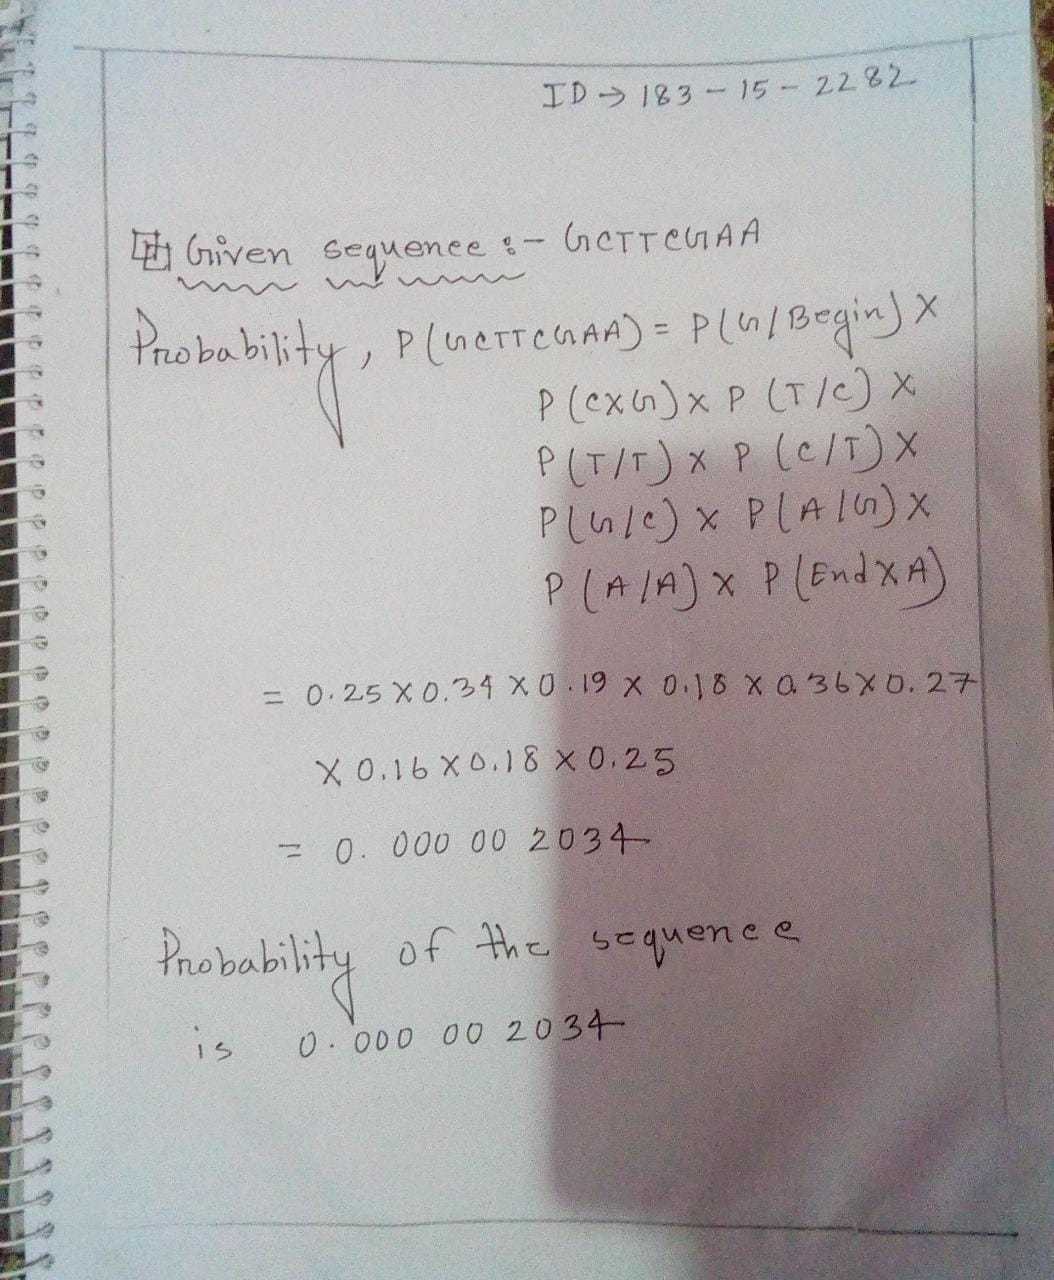 ID → 183-15-2282
Given sequence :- GCTTCGAA
Probability, P(GCTTCGAA) = P(G/Begin) X
P(CXG) X P (T/C) X
P(T/T) X P (C/T) X
P(G/C) X P(A/G) X
P (A/A) X P(EndXA)
= 0.25 X 0.34 X 0.19 X 0.18 X 0.36 X 0.27
X 0.16 X 0.18 X 0.25
= 0. 000 00 2034
Probability of the sequence
is 0.000 00 2034